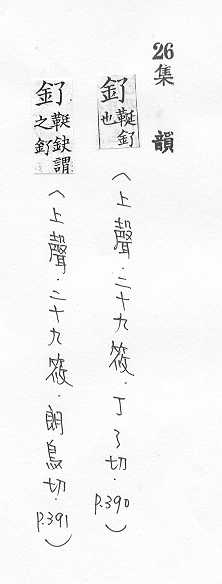 26集韻
釕鞓釕也(上聲.二十九筱.丁了切.P.390)
釕鞓鈌謂之釕(上聲.二十九筱.朗鳥切.P.391)